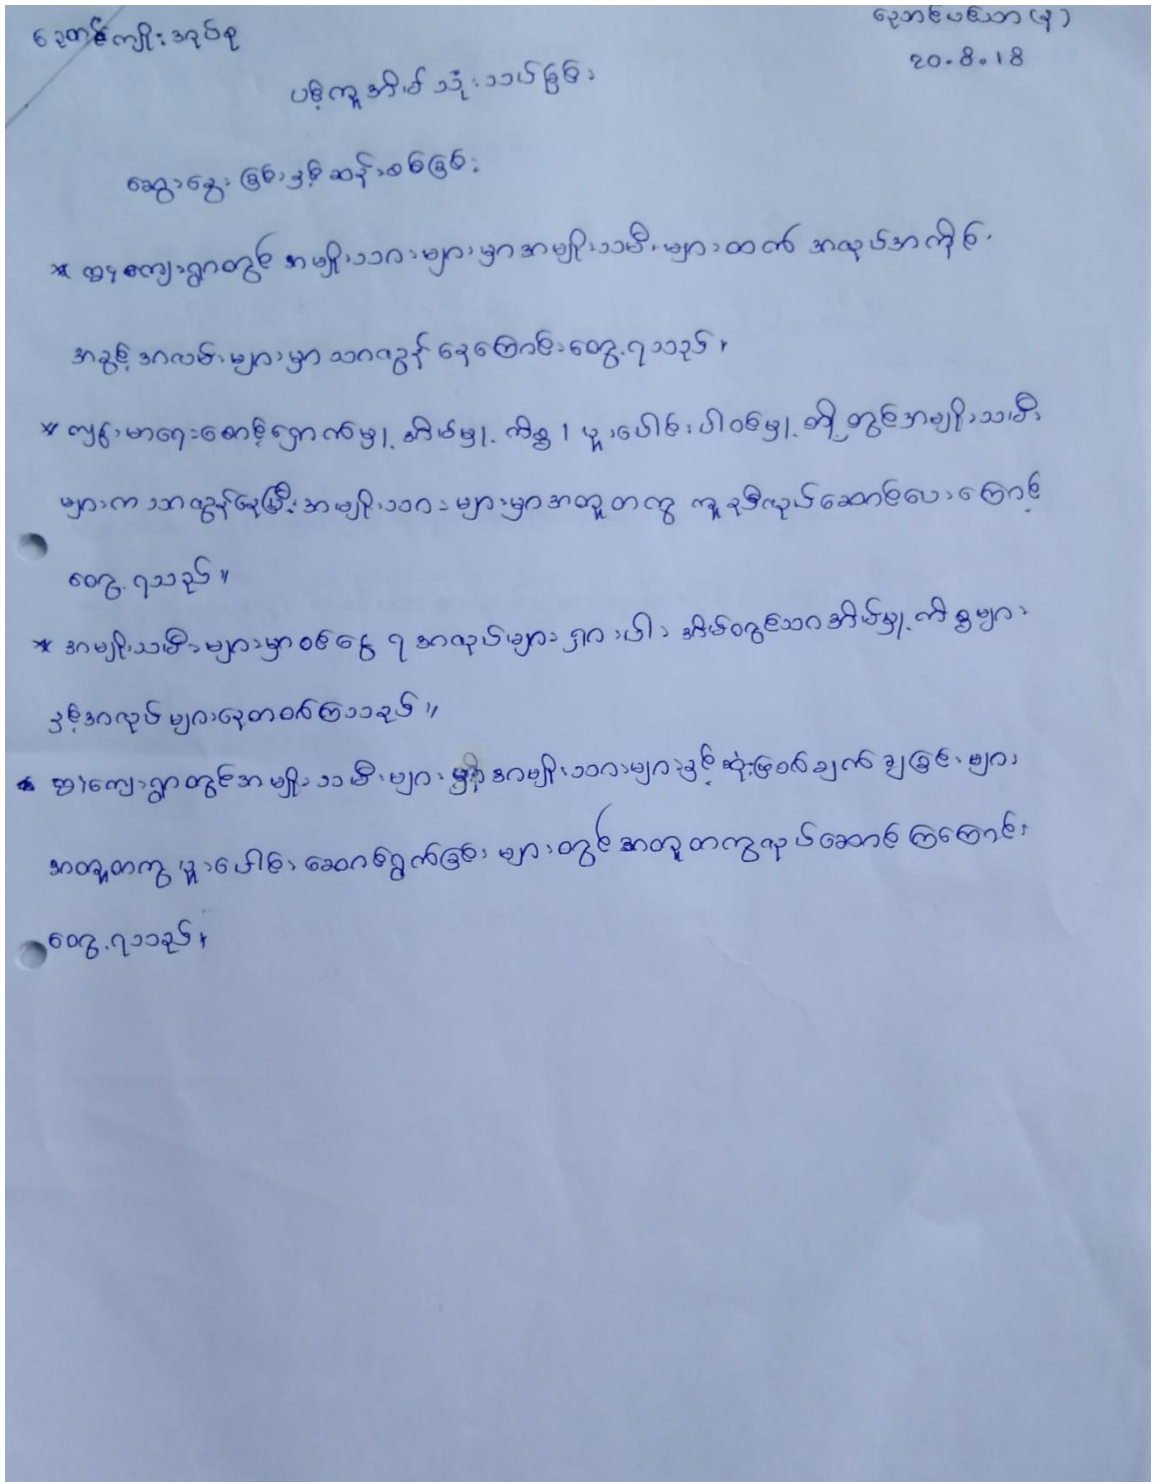 ညောင်ပင်သာ (မ)
20.8.18
ပင့်ကူအိမ် သုံးသပ်ခြင်း
ဆွေးနွေးခြင်းနှင့် ဆန်းစစ်ခြင်း
* ဤကျေးရွာတွင် အမျိုးသားများမှာ အမျိုးသမီးများထက် အလုပ်အကိုင်
အခွင့်အလမ်းများမှာ သာလွန်နေကြောင်း တွေ့ရသည်။
* ကျန်းမာရေးစောင့်ရှောက်မှု့ အိမ်မှု့ကိစ္စ၊ ပူးပေါင်းပါဝင်မှု့တို့တွင် အမျိုးသမီး
များက သာလွန်နေပြီး အမျိုးသားများမှာ အတူတကွ ကူညီလုပ်ဆောင်ပေးကြောင့်
တွေ့ရသည်။
* အမျိုးသမီးများမှာ ဝင်ငွေရအလုပ်များ ရှားပါး အိမ်တွင်သာ အိမ်မှု့ကိစ္စများ
နှင့် အလုပ်များနေတတ်ကြသည်။
* ဤကျေးရွာတွင် အမျိုးသမီးများ အမျိုးသားများနှင့် ဆုံးဖြတ်ချက်ချခြင်းများ
အတူတကွ ပူးပေါင်းဆောင်ရွက်ခြင်းများတွင် အတူတကွလုပ်ဆောင်ကြကြောင်း
တွေ့ရသည်။